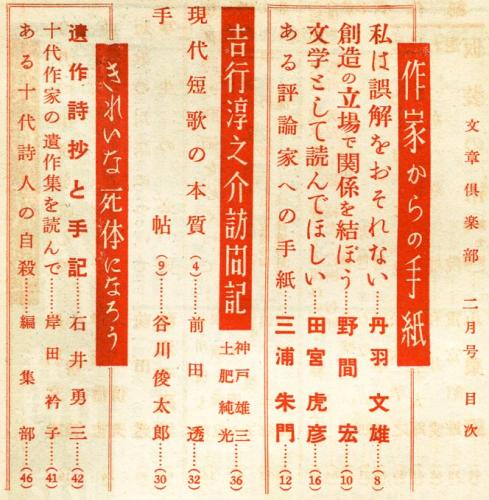 文章倶楽部 二月号 目次
作家からの手紙
私は誤解をおそれない……丹羽文雄(8)
創造の立場で関係を結ぼう……野間宏(10)
文学として読んでほしい……田宮虎彦(16)
ある評論家への手紙……三浦朱門(12)
吉行淳之介訪問記 神戸雄三 土肥純光 36
現代短歌の本質(4)……前田透(32)
手帖(9)……谷川俊太郎(30)
きれいな死体になろう
遺作詩抄と手記……石井勇三(42)
十代作家の遺作集を読んで……岸田衿子(41)
ある十代詩人の自殺……編集部(46)